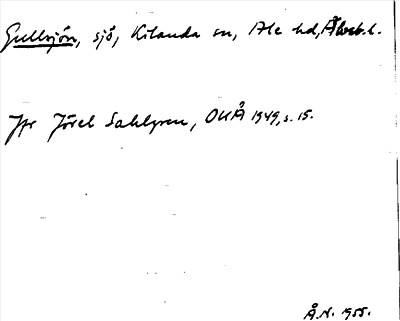 Gullsjön, sjö, Kilanda sn, Ale hd, Älvsb.l.
Jfr Jöran Sahlgren, OUÅ 1949, s. 15.
Å.N. 1955.